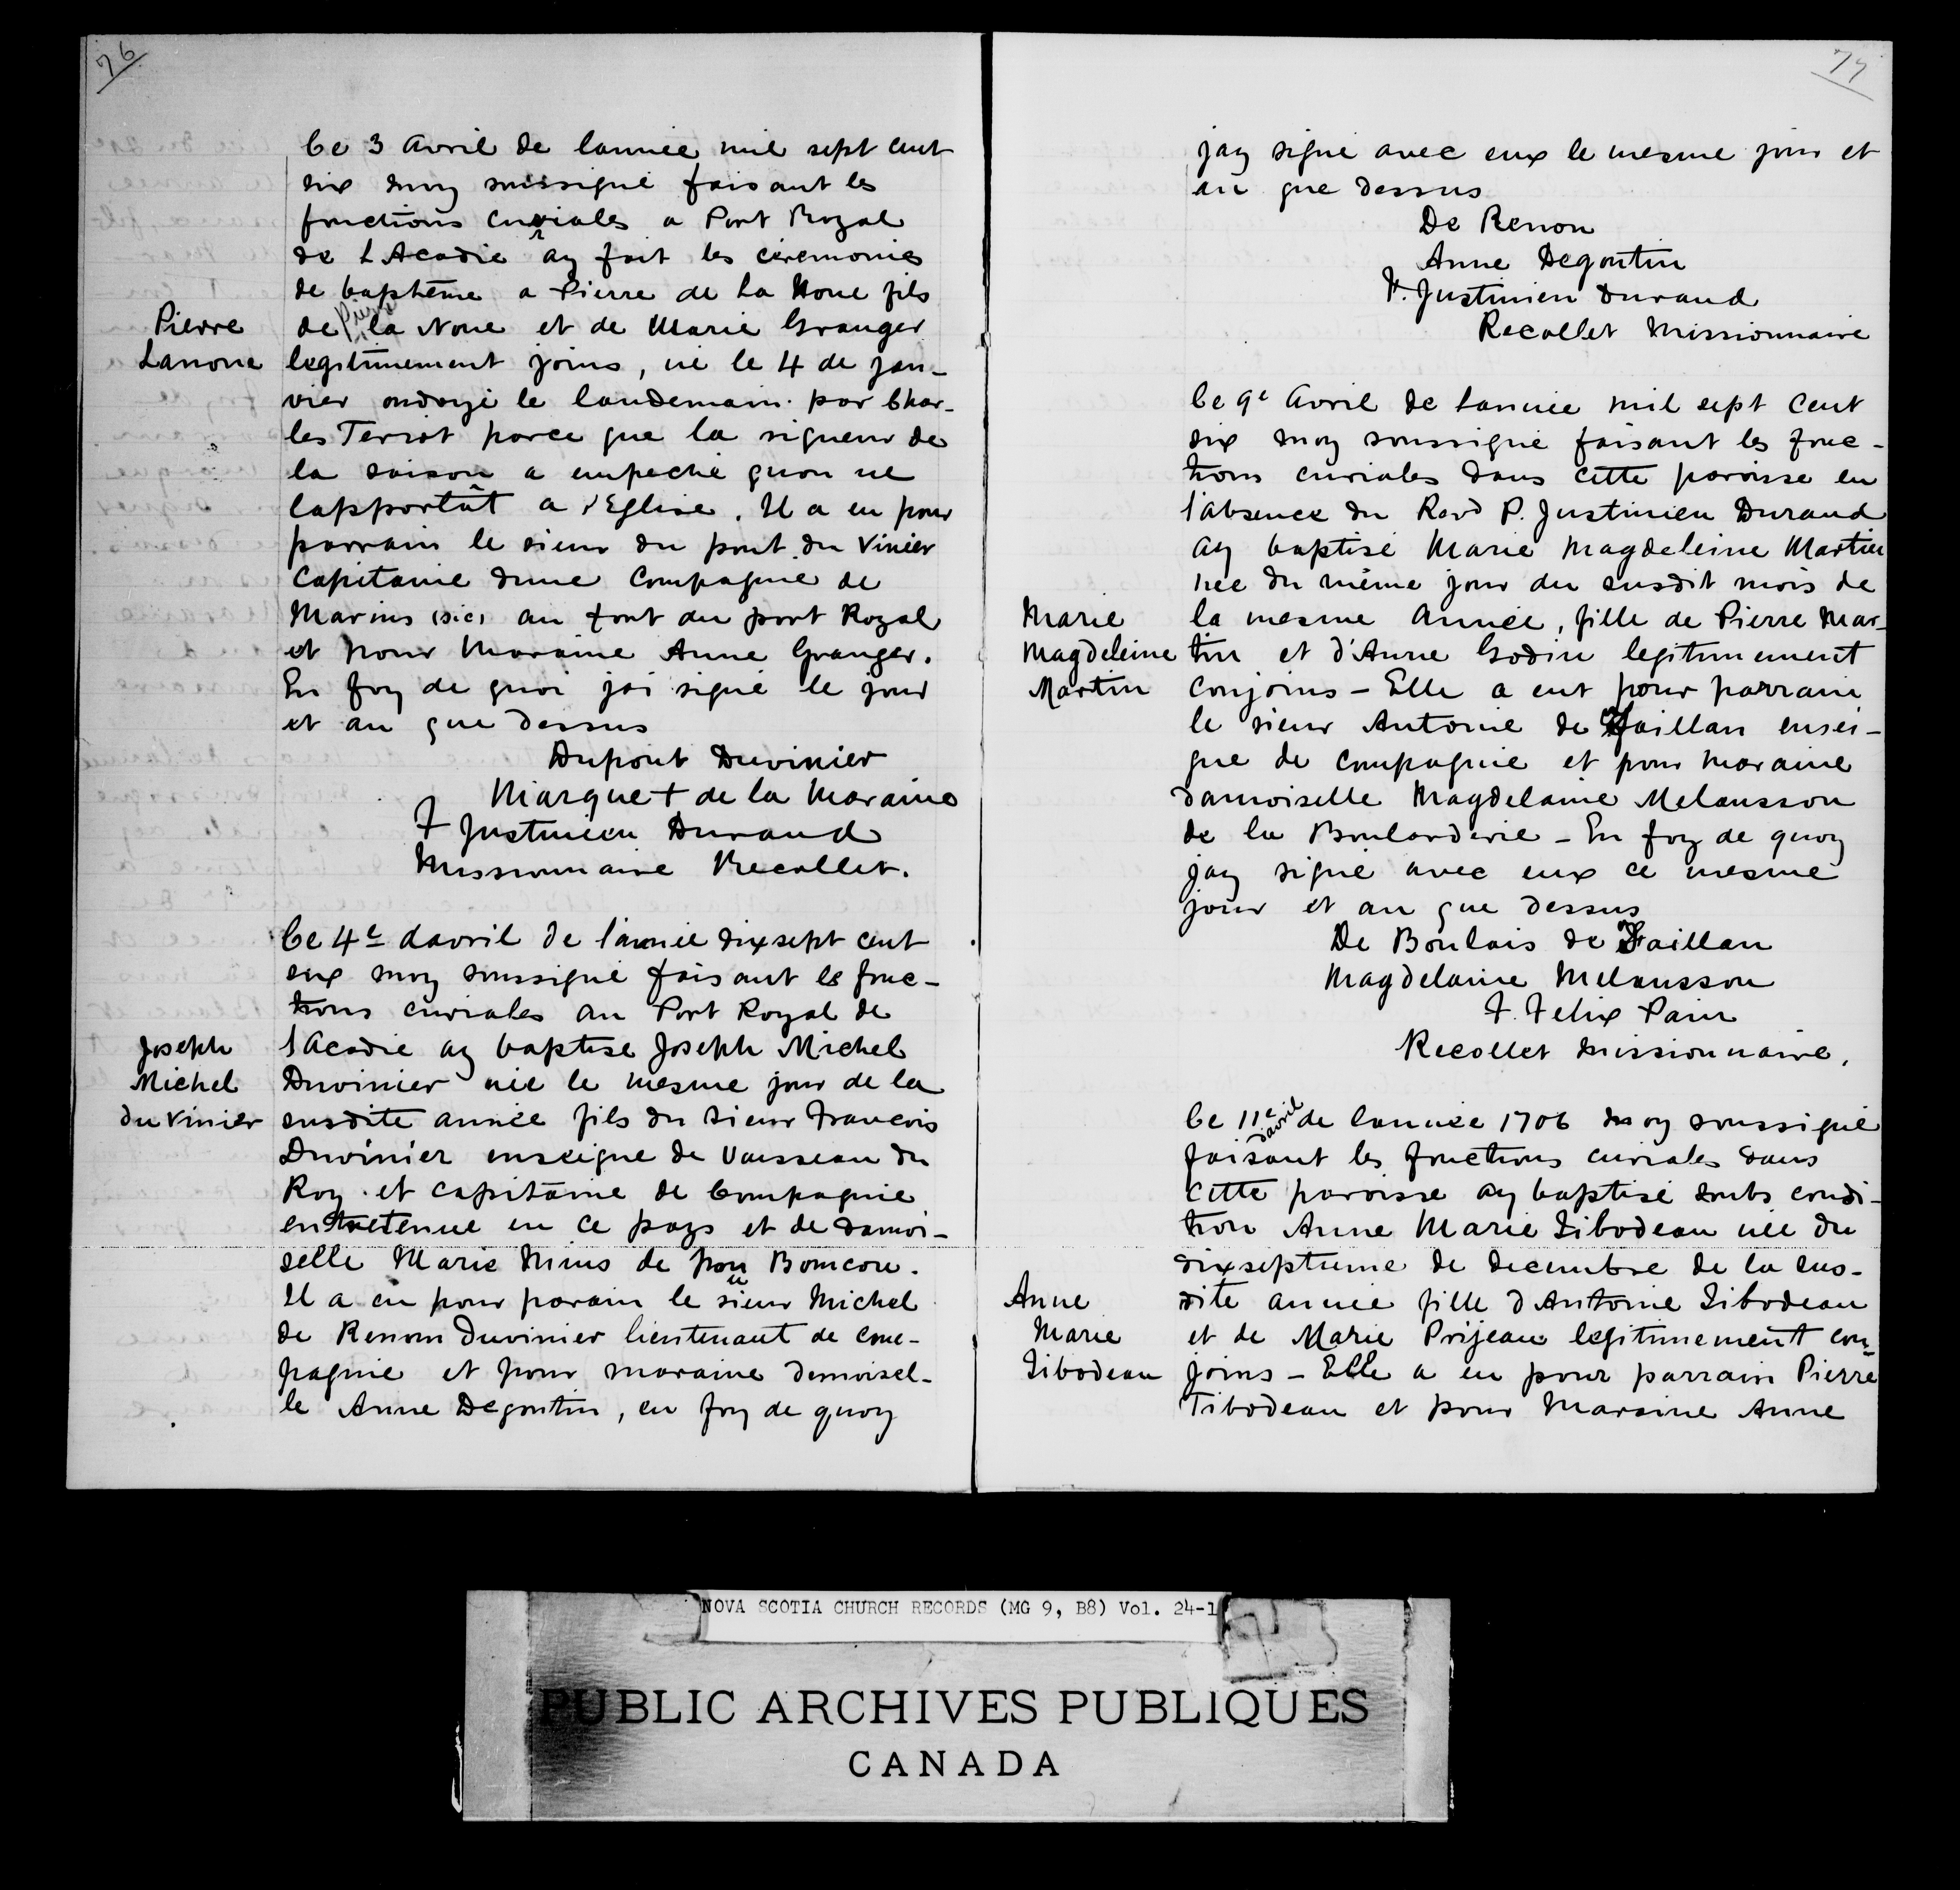 76
Ce 3 Avril de lannee mil sept cent
six moy soussigné faisant les
fonctions curiales a Port Royal
de L Acadie ay fait les cérémonies
de baptême a Pierre de La Noue fils
Pierre
de la Noue et de Marie Granger
Pierre
Lanoue
legitimement joins, né le 4 de jan-
vier ondoyé le landemain par Char-
les Terriot parce que la rigueur de
la saison a empeché quon ne
lapportât a l'Eglise. Il a eu pour
parrain le sieur du pont du Vinier
Capitaine dune Compagnie de
Marins (sic) au fort du port Royal
et pour Maraine Anne Granger.
En foy de quoi jai signé le jour
et an que dessus
Dupont Duvinier
Marque + de la Maraine
F Justinien Durand
Missionnaire Recollet.
Ce 4e davril de l'année dix sept cent
six moy soussigné faisant les fonc-
tions curiales au Port Royal de
l'Acadie ay baptise Joseph Michel
Joseph
Michel
du Vinier
Duvinier né le mesme jour de la
susdite année fils du Sieur Francois
Duvinier enseigne de Vaisseau du
Roy et capitaine de Compagnie
entretenue en ce pays et de damoi-
selle Marie Mius de pou Bomcou.
Il a eu pour parain le sieur Michel
de Renom Duvinier lieutenant de com-
pagnie et pour maraine demoisel-
le Anne Degoutin, en foy de quoy
77
jay signé avec eux le mesme jour et
an que dessus
De Renon
Anne Degoutin
F. Justinien Durand
Recollet Missionnaire
Ce 9e Avril de lannee mil sept Cent
six moy soussigné faisant les fonc-
tions curiales dans cette paroisse en
l'absence du Revd P. Justinien Durand
ay baptisé Marie Magdeleine Martin
née du même jour du susdit mois de
Marie
Magdeleine
Martin
la mesme Année, fille de Pierre Mar-
tin et d'Anne Godin legitimement
conjoins - Elle a eut pour parrain
le sieur Antoine de Saillan ensei-
gne de Compagnie et pour maraine
damoiselle Magdelaine Melansson
de la Boularderie - En foy de quoy
jay signé avec eux ce mesme
jour et an que dessus
De Boulais de Saillan
Magdelaine Melansson
F. Felix Pain
Recollet missionnaire.
Ce 11e davril de lannee 1706 moy soussigné
faisant les fonctions curiales dans
cette paroisse ay baptisé soubs condi-
tion Anne Marie Tibodeau née du
dixseptieme de decembre de la sus-
Anne
Marie
Tibodeau
dite année fille d'Antoine Tibodeau
et de Marie Prijean legitimement con-
joins - Elle a eu pour parrain Pierre
Tibodeau et pour Maraine Anne
NOVA SCOTIA CHURCH RECORDS (MG 9, B8) Vol. 24-1
PUBLIC ARCHIVES PUBLIQUES
CANADA